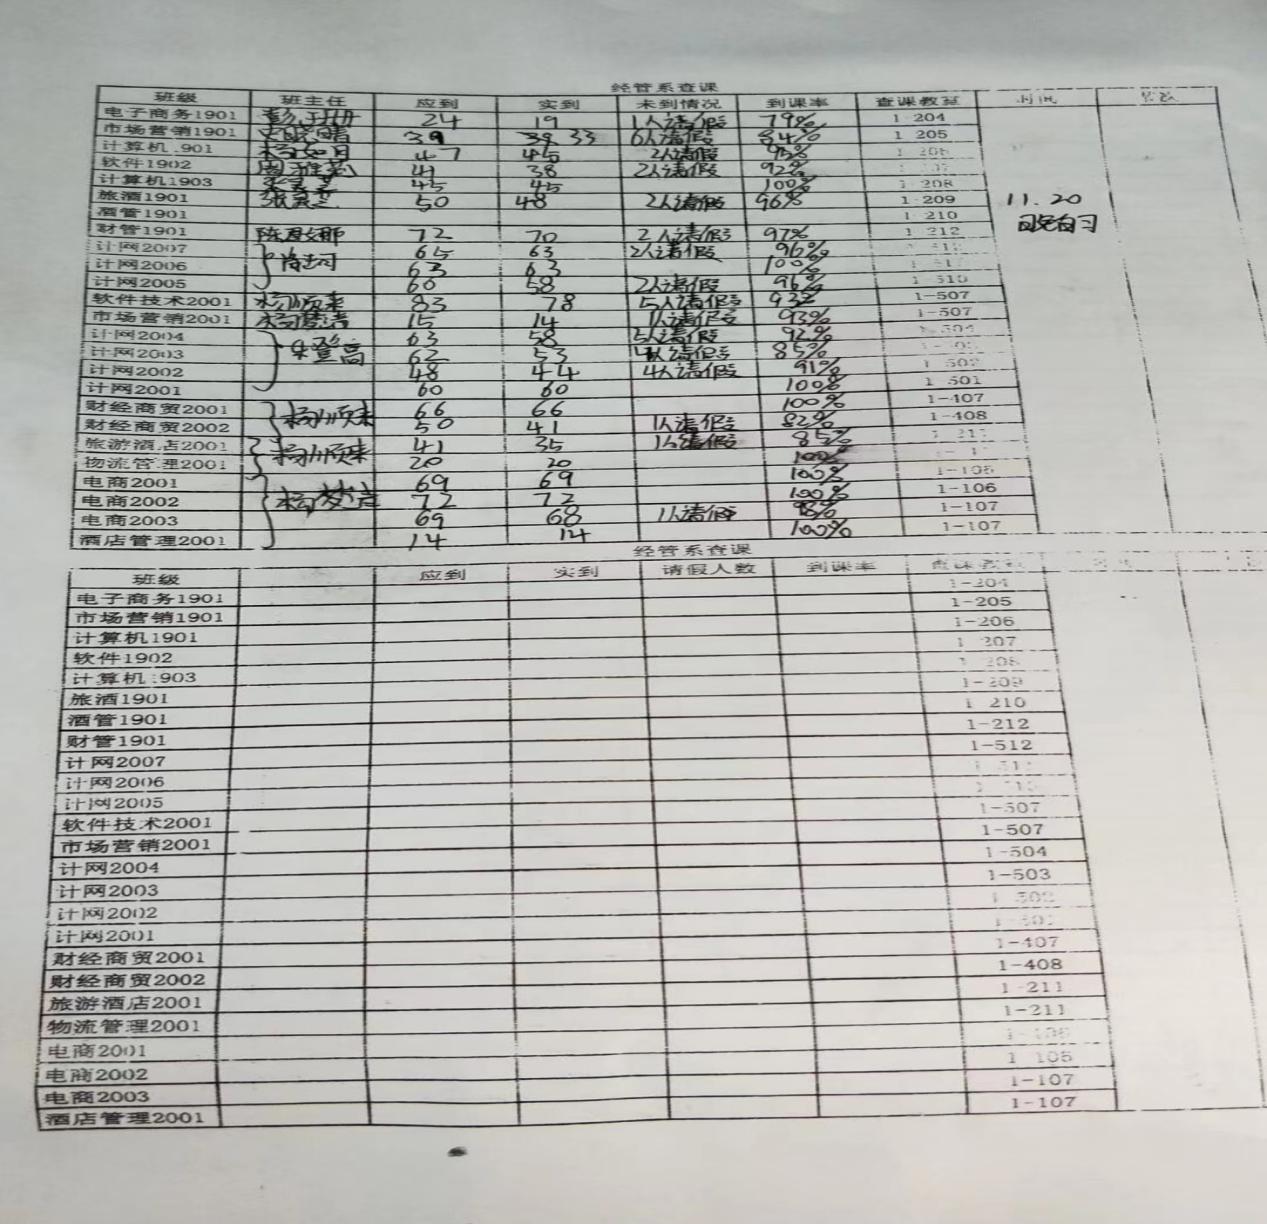 经管系查课
班级 班主任 应到 实到 未到情况 到课率 查课教室 时间
电子商务1901 24 19 1人请假 79% 1 204
市场营销1901 39 39 33 6人请假 84% 1 205
计算机1901 47 45 2人请假 95% 1 206
软件1902 41 38 2人请假 92%
计算机1903 45 45 100% 1-208
旅酒1901 50 48 2人请假 96% 1-209 11.20
酒管1901 1 210 晚自习
财管1901 72 70 2人请假 97% 1 212
计网2007 65 63 2人请假 96%
计网2006 63 63 100%
计网2005 60 58 2人请假 96% 1 510
软件技术2001 杨顺来 83 78 5人请假 93% 1-507
市场营销2001 15 14 1人请假 93% 1-507
计网2004 63 58 5人请假 92% 1-504
计网2003 朱登高 62 53 请假 85%
计网2002 48 44 4人请假 91% 1 502
计网2001 60 60 100% 1 501
财经商贸2001 杨顺来 66 66 100% 1-407
财经商贸2002 50 41 1人请假 82% 1-408
旅游酒店2001 杨顺来 41 35 1人请假 85% 1-211
物流管理2001 20 20 100%
电商2001 69 69 100% 1-106
电商2002 72 72 100% 1-106
电商2003 69 68 1人请假 98% 1-107
酒店管理2001 14 14 100% 1-107
经管系查课
班级 应到 实到 请假人数 到课率 查课教室
电子商务1901 1-204
市场营销1901 1-205
计算机1901 1-206
软件1902 1 207
计算机1903 1 208
旅酒1901 1-209
酒管1901 1 210
财管1901 1-212
计网2007 1-512
计网2006
计网2005
软件技术2001 1-507
市场营销2001 1-507
计网2004 1-504
计网2003 1-503
计网2002 1 502
计网2001
财经商贸2001 1-407
财经商贸2002 1-408
旅游酒店2001 1-211
物流管理2001 1-211
电商2001 1-106
电商2002 1 106
电商2003 1-107
酒店管理2001 1-107